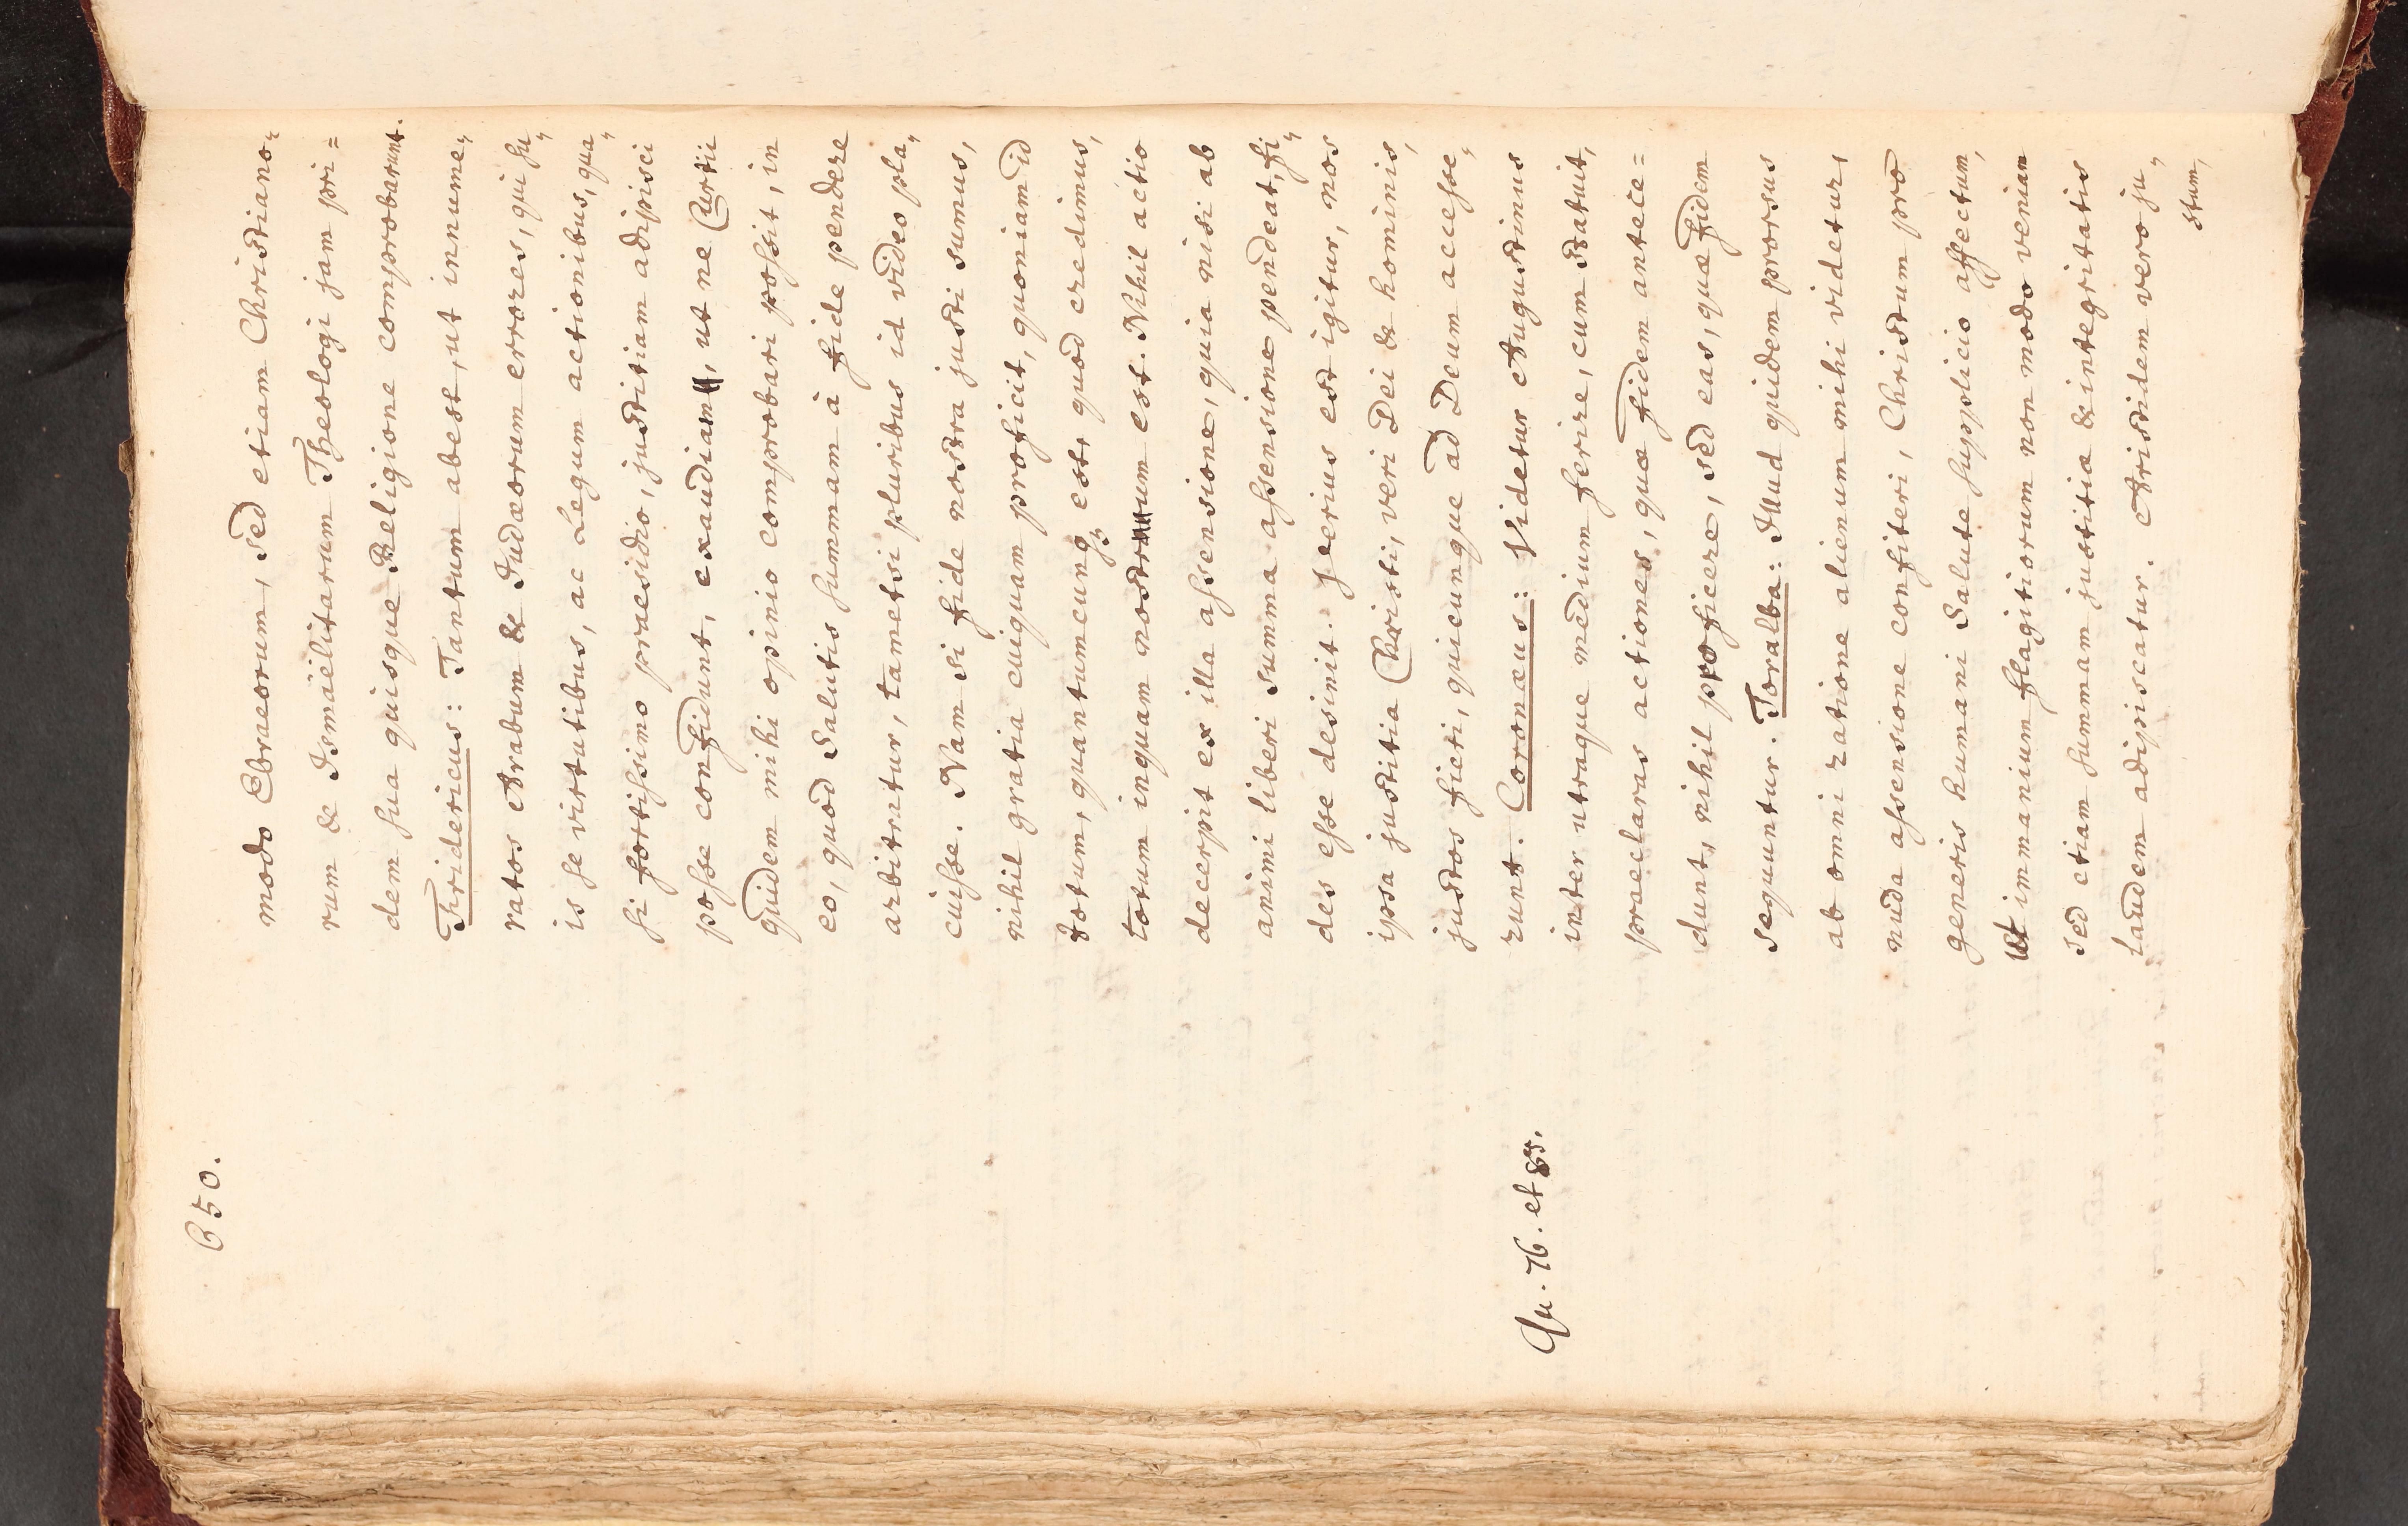 650.
modo Ebraeorum, sed etiam Christiano-
rum & Ismaëlitarum Theologi jam pri=
dem sua quisque Religione comprobarunt.
Fridericus: Tantum abest, ut innume„
ratos Arabum & Judæorum errores, qui su„
is se virtutibus, ac Legum actionibus, qua„
si fortissimo praesidio, justitiam adipisci
posse confidunt, exaudiam, ut ne Curtii
quidem mihi opinio comprobari possit, in
eo, quòd Salutis summam à fide pendere
arbitratur, tametsi pluribus id video pla„
cuisse. Nam si fide nostra justi sumus,
nihil gratia cuiquam proficit, quoniam id
totum, quantumcunq; est, quod credimus,
totum inquam nostrum est. Nihil actio
decerpit ex illa assensione, quia nisi ab
animi liberi summa assensione pendeat, fi„
des esse desinit. Verius est igitur, nos
ipsa justitia Christi, veri Dei & hominis,
justos fieri, quicunque ad Deum accesse„
runt. Coronæus: Videtur Augustinus
Qu. 76. et 83.
inter utraque medium ferire, cum statuit,
praeclaras actiones, quæ fidem antece=
dunt, nihil proficere, sed eas, quæ fidem
sequuntur. Toralba: Illud quidem prorsus
ab omni ratione alienum mihi videtur,
nuda assensione confiteri, Christum pro
generis humani Salute supplicio affectum,
ut immanium flagitiorum non modo veniam
sed etiam summam justitiæ & integritatis
laudem adipiscatur. Aristidem vero ju„
stum,